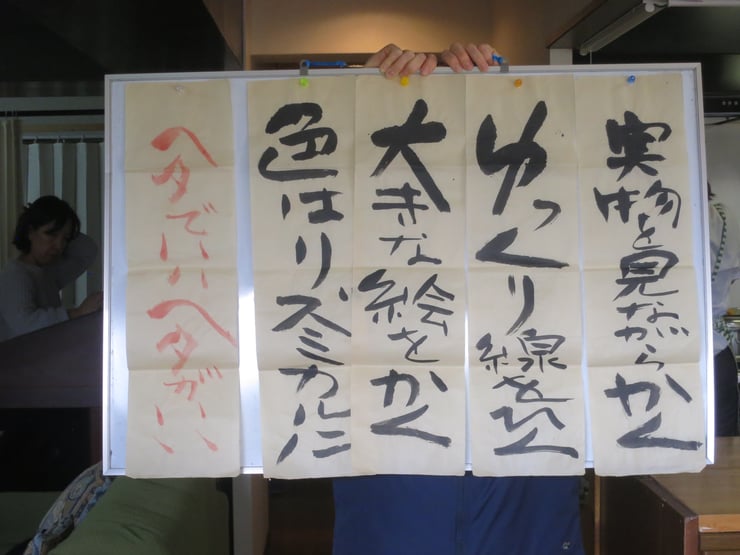 実物を見ながらかく
ゆっくり線をひく
大きな絵をかく
色はリズミカルに
ヘタでいいヘタがいい